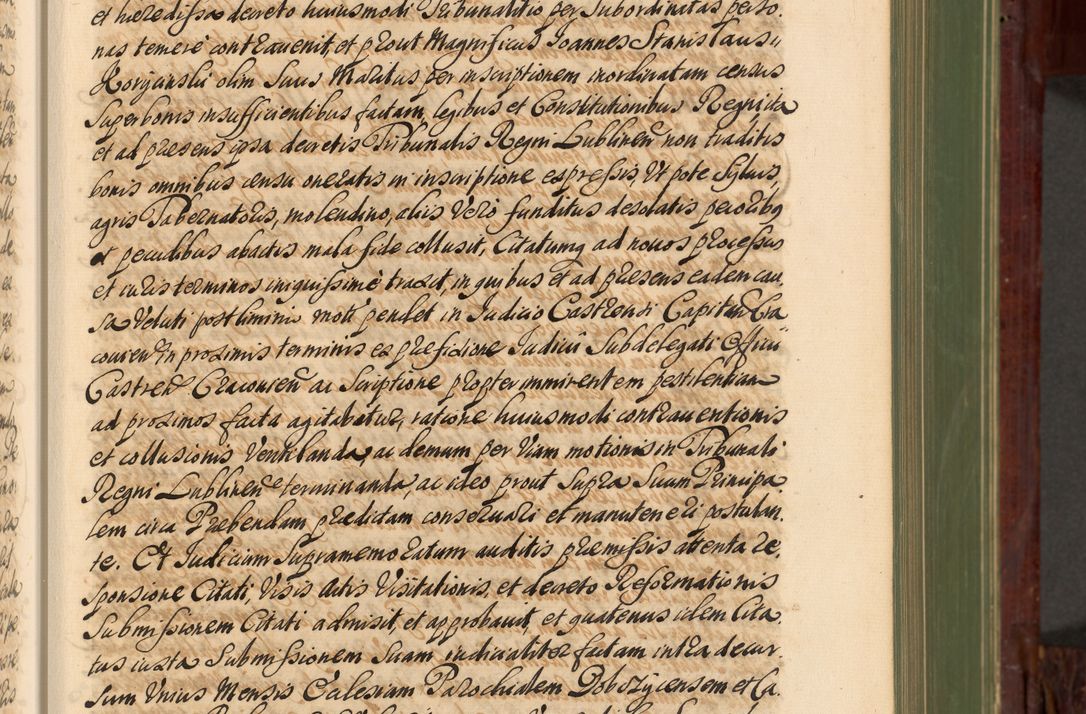 et hæredissa decreto huiusmodi Tribunalitio per Subordinatas perso.
nas temerè contrauenit, et prout Magnificus Joannes Stanislaus
olim Suus Maritus per inscriptionem inordinatam census
Super bonis insufficientibus factam, legibus et Constitutionibus Regni, ita
et ad præsens ipsa decretis Tribunalis Regni Lublinen non traditis
bonis omnibus censu oneratis in inscriptione expressis, Vt pote Syluis,
agris Tabernatoris, molendino, aliis Verò funditus desolatis pecoribus
et pecudibus abactis mala fide collusit, Citatumq ad nouos processus
et iuris terminos iniquissimè traxit, in quibus et ad præsens eadem cau
sa Veluti postliminiu moti pendet in Iudicio Castrensi Capitan Cra
couien In proximis terminis ex præfixione Iudicii Subdelegati Officii
Castren Cracouien ac Scriptione propter imminentem pestilentiam
ad proximos facta agitabatur, ratione huiusmodi contrauentionis
et collusionis Ventilanda, ac demum per Viam motionis in Tribunali
Regni Lublinen terminanda, ac ideo prout Supra Suum Principa
lem circa Præbendam prædictam conseruari et manuteneri postulan.
te. Et Iudicium Supramemoratum auditis præmissis attenta re,
sponsione Citati, Visis Actis Visitationis, et decreto Reformationis
Submissionem Citati admisit, et approbauit, et quatenus idem Cita
tus iuxta Submissionem Suam iudicialiter factam intra decur.
sum Vnius Mensis Ecclesiam Parochialem Dobczycensem et Ca.